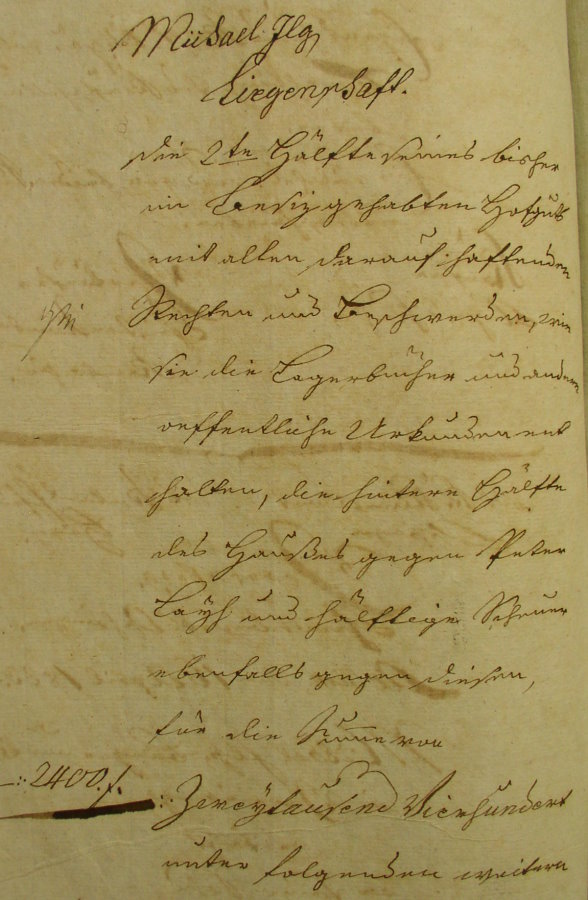 Michael Ilg
Liegenschaft.
Die 2te Hälfte seines bisher
im Besiz gehabten Hofguts
mit allen darauf haftenden
Rechten und Beschwerden, wie
sie die Lagerbücher und andere
oeffentliche Urkunden ent
halten, die hintere Hälfte
des Haußes gegen Peter
Layh und hälftige Scheuer
ebenfalls gegen diesen,
für die Summe von
-:2400.f.
:Zweytausend Vierhundert
unter folgenden weitern